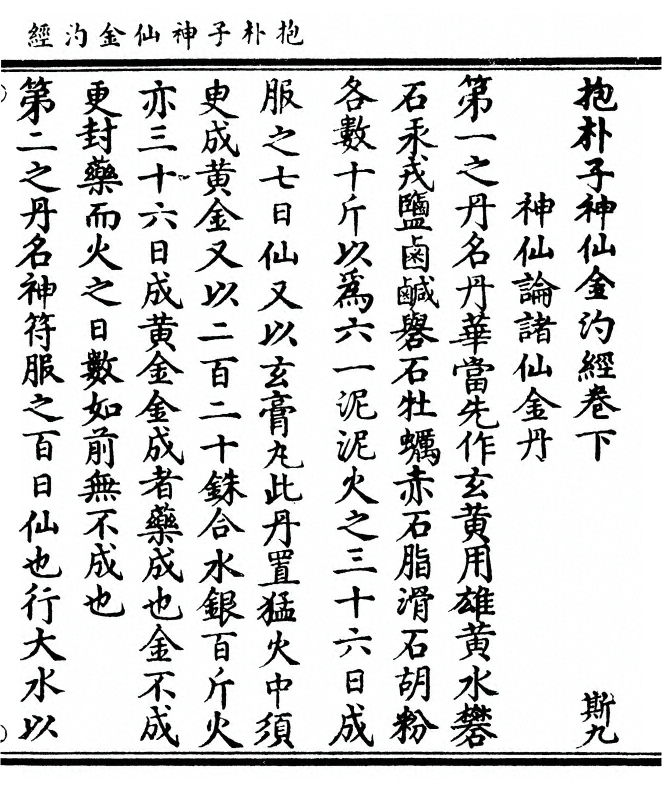 抱朴子神仙金汋經
抱朴子神仙金汋經卷下
斯九
神仙論諸仙金丹
第一之丹名丹華當先作玄黃用雄黃水礬
石汞戎鹽鹵鹹礜石牡蠣赤石脂滑石胡粉
各數十斤以爲六一泥泥火之三十六日成
服之七日仙又以玄膏丸此丹置猛火中須
㪅成黃金又以二百二十銖合水銀百斤火
亦三十六日成黃金金成者藥成也金不成
更封藥而火之日數如前無不成也
第二之丹名神符服之百日仙也行大水以